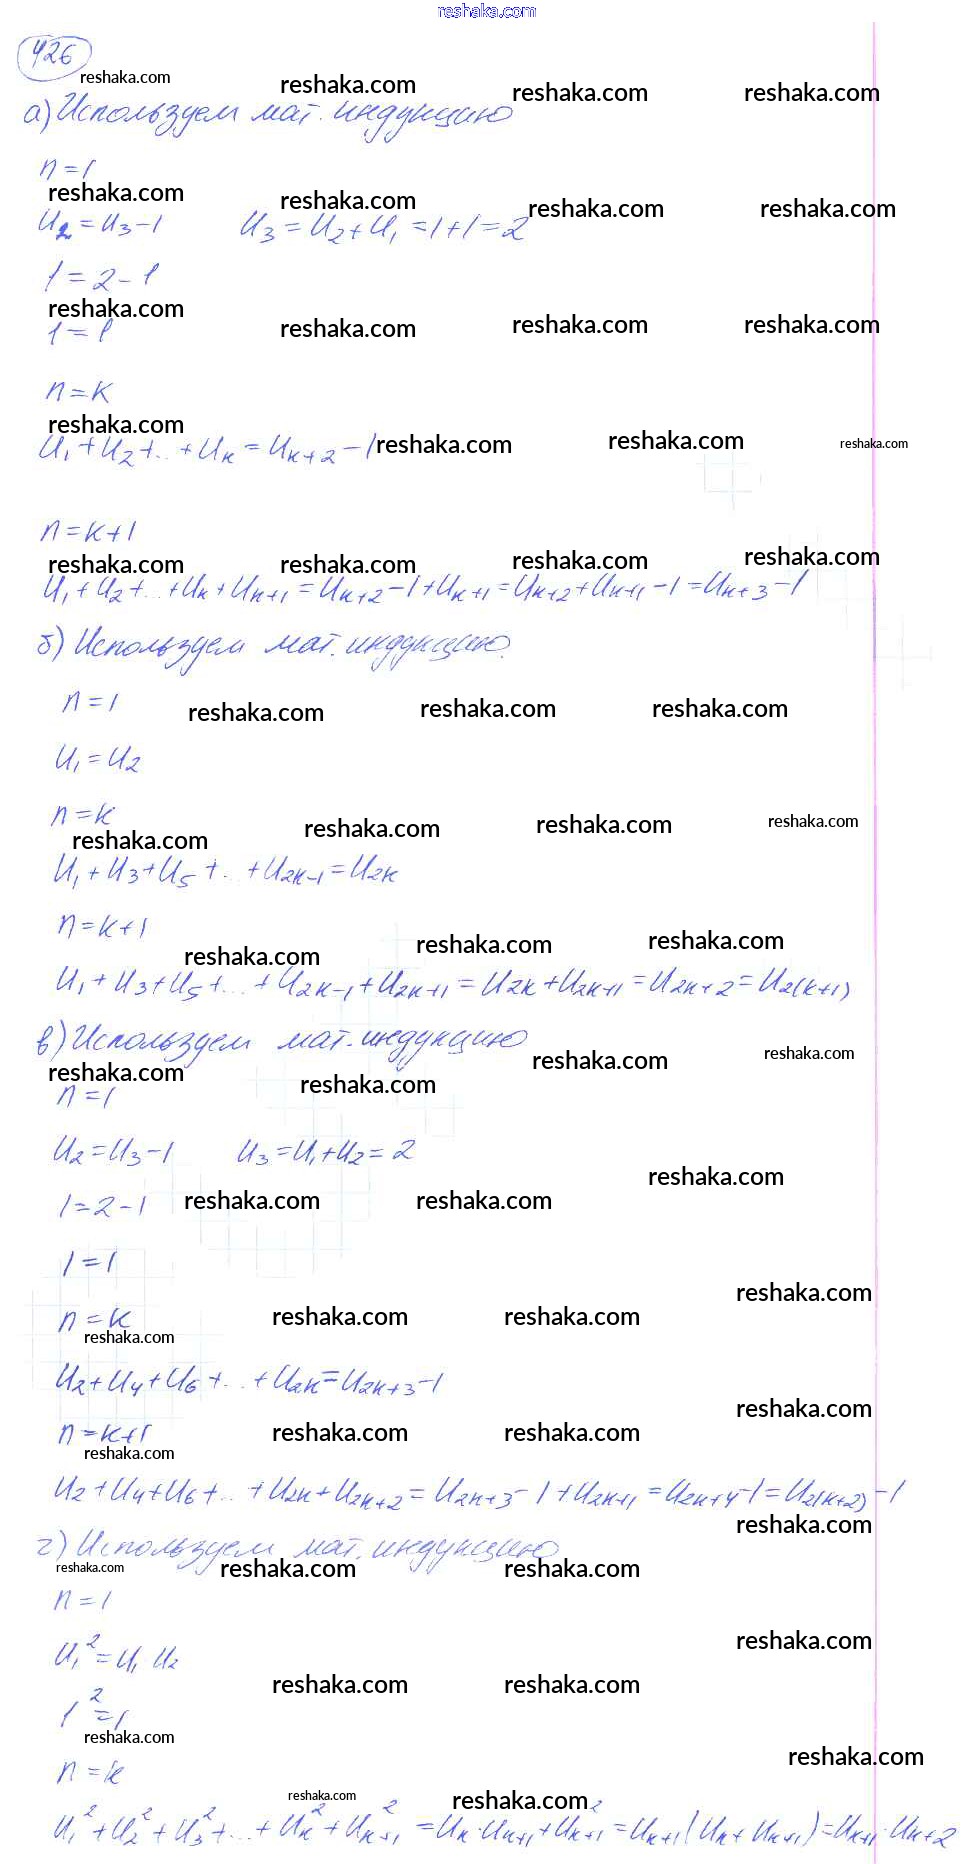 reshaka.com
426
reshaka.com reshaka.com reshaka.com reshaka.com
а) Используем мат. индукцию
n=1
reshaka.com reshaka.com reshaka.com reshaka.com
U₂=U₃-1 U₃=U₂+U₁=1+1=2
1=2-1
reshaka.com reshaka.com reshaka.com reshaka.com
1=1
n=k
reshaka.com reshaka.com reshaka.com reshaka.com
U₁+U₂+...+Uₖ=Uₖ₊₂-1
n=k+1
reshaka.com reshaka.com reshaka.com reshaka.com
U₁+U₂+...+Uₖ+Uₖ₊₁=Uₖ₊₂-1+Uₖ₊₁=Uₖ₊₂+Uₖ₊₁-1=Uₖ₊₃-1
б) Используем мат. индукцию.
n=1
reshaka.com reshaka.com reshaka.com
U₁=U₂
n=k
reshaka.com reshaka.com reshaka.com reshaka.com
U₁+U₃+U₅+...+U₂ₖ₋₁=U₂ₖ
n=k+1
reshaka.com reshaka.com reshaka.com
U₁+U₃+U₅+...+U₂ₖ₋₁+U₂ₖ₊₁=U₂ₖ+U₂ₖ₊₁=U₂ₖ₊₂=U₂₍ₖ₊₁₎
в) Используем мат. индукцию
reshaka.com reshaka.com reshaka.com reshaka.com
n=1
U₂=U₃-1 U₃=U₁+U₂=2
reshaka.com reshaka.com reshaka.com
1=2-1
1=1
n=k
reshaka.com reshaka.com reshaka.com reshaka.com
U₂+U₄+U₆+...+U₂ₖ=U₂ₖ₊₃-1
n=k+1
reshaka.com reshaka.com reshaka.com reshaka.com
U₂+U₄+U₆+...+U₂ₖ+U₂ₖ₊₂=U₂ₖ₊₃-1+U₂ₖ₊₁=U₂ₖ₊₄-1=U₂₍ₖ₊₂₎-1
г) Используем мат. индукцию
reshaka.com reshaka.com reshaka.com reshaka.com
n=1
U₁²=U₁ U₂
reshaka.com reshaka.com reshaka.com
1²=1
reshaka.com reshaka.com
n=k
reshaka.com reshaka.com
U₁²+U₂²+U₃²+...+Uₖ²+Uₖ₊₁²=Uₖ·Uₖ₊₁+Uₖ₊₁²=Uₖ₊₁(Uₖ+Uₖ₊₁)=Uₖ₊₁·Uₖ₊₂